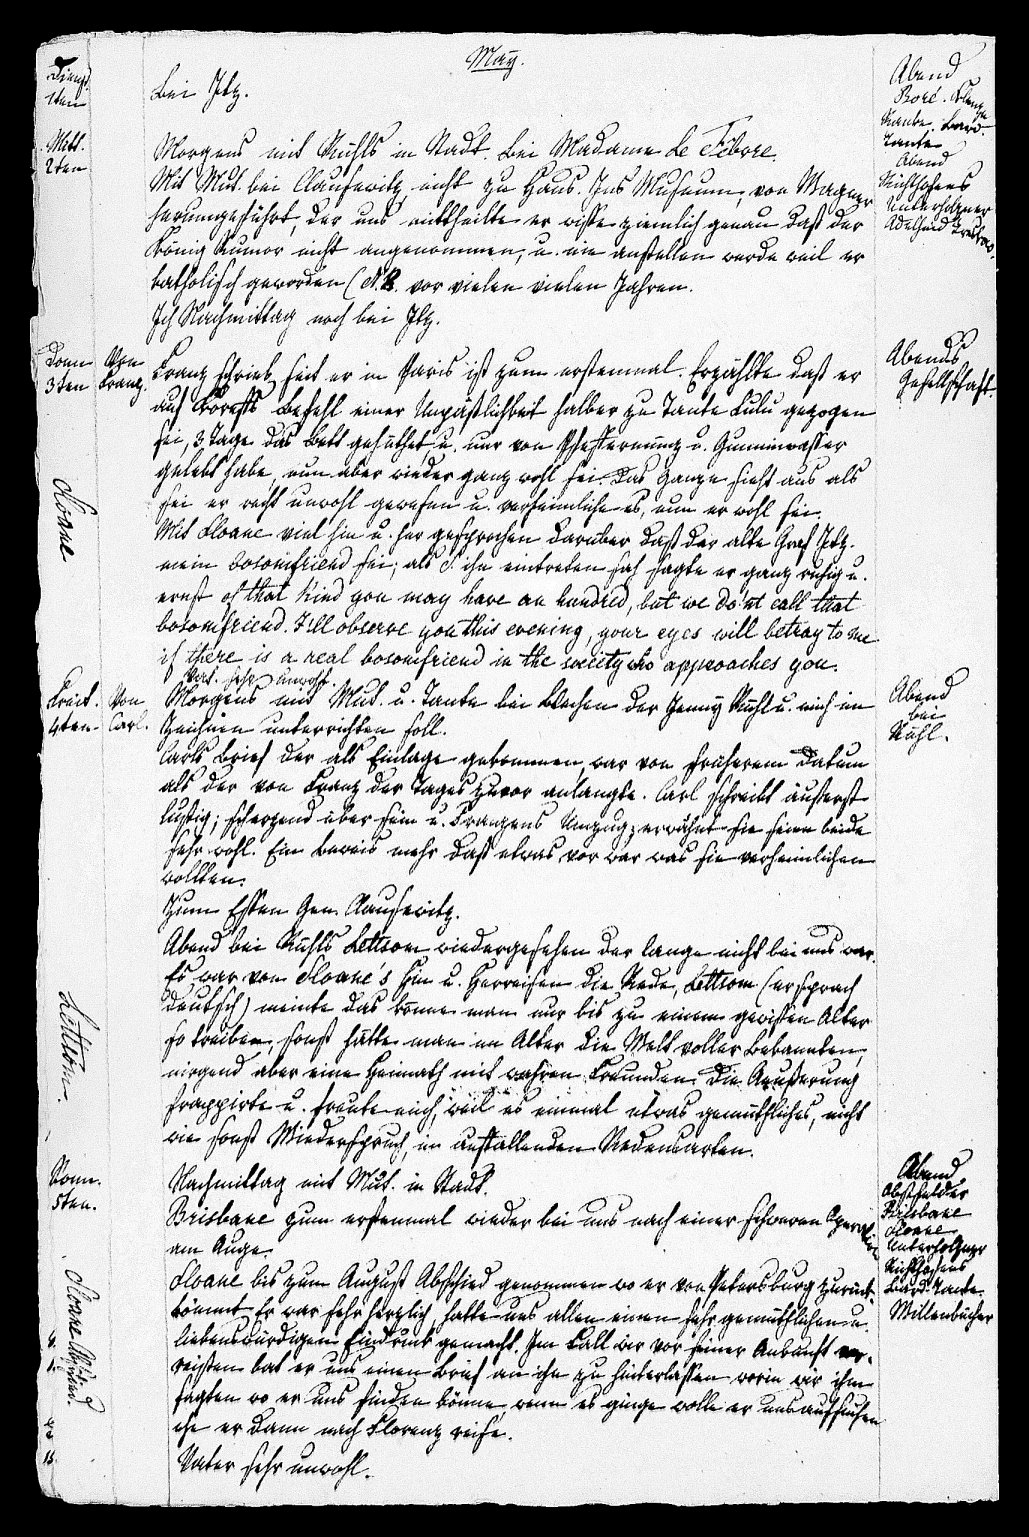 May.
Dienst.
1ten
Bei Itz.
Abend
Boré.
Tante. Bard.
Tante
Mitt.
2ten
Morgens mit Rühls in Stadt. Bei Madame Le Fèbore.
Mit Mut. bei Clausewitz nicht zu Haus. Ins Museum, von Wagner
herumgeführt, der uns mittheilte er wisse ziemlich genau daß der
König Rumor nicht angenommen, u. nie anstellen werde weil er
katholisch geworden (N.B. vor vielen vielen Jahren.
Ich Nachmittag noch bei Itz.
Abend
Richthofens
Unterholzner
Adelheid
Donn
3ten
Von
Franz.
Franz schrieb, seit er in Paris ist zum erstenmal. Erzählte daß er
auf Koreffs Befehl einer Unpäßlichkeit halber zu Tante Lulu gezogen
sei, 3 Tage das Bett gehüthet, u. nur von Pfeffermünz u. Gummiwasser
gelebt habe, nun aber wieder ganz wohl sei. Das Ganze sieht aus als
sei er recht unwohl gewesen u. verheimliche es, nun er wohl sei.
Abends
Gesellschaft.
Sloane
Mit Sloane viel hin u. her gesprochen darüber daß der alte Graf Itz.
mein bosomfriend sei; als S ihn eintreten sah sagte er ganz ruhig u.
ernst of that kind you may have an hundred, but we do'nt call that
bosomfriend. I'll observe you this evening, your eyes will betray to me
if there is a real bosomfriend in the society who approaches you.
Vat. sehr unwohl.
Freit.
4ten
Von
Carl.
Morgens mit Mut. u. Tante bei Blechen der Jenny Rühl u. mich im
Zeichnen unterrichten soll.
Abend
bei
Rühl.
Carls Brief der als Einlage gekommen, war von früherem Datum
als der von Franz der Tages zuvor anlangte. Carl schreibt äußerst
lustig; scherzend über sein u. Franzens Umzug; erwähnt sie seien beide
sehr wohl. Ein Beweis mehr daß etwas vor war was sie verheimlichen
wollten.
Zum Essen Gen. Clausewitz.
Lettsom.
Abend bei Rühls Lettsom wiedergesehen der lange nicht bei uns war.
Es war von Sloane's Hin u. Herreisen die Rede, Lettsom (er sprach
deutsch) meinte das könne man nur bis zu einem gewissen Alter
so treiben, sonst hätte man im Alter die Welt voller Bekannten,
nirgend aber eine Heimath mit wahren Freunden. Die Aeußerung
frappirte u. freute mich, weil es einmal etwas gemüthliches, nicht
wie sonst Wiederspruch, in auffallenden Redensarten.
Sonn.
5ten.
Nachmittag mit Mut. in Stadt.
Brisbane zum erstenmal wieder bei uns nach einer schweren Operation
am Auge.
Abend
Abstfelder
Brisbane
Sloane
Unterholzner
Richthofens
Bard. Tante.
Miltenbücher
Sloane Abschied.
Sloane bis zum August Abschied genommen wo er von Petersburg zurück-
kömmt. Er war sehr herzlich, hatte uns allen einen sehr gemüthlichen u.
liebenswürdigen Eindruck gemacht. Im Fall wir vor seiner Ankunft ver-
reisten bat er uns einen Brief an ihn zu hinterlassen worin wir ihm
sagten wo er uns finden könne, wenn es ginge wolle er uns aufsuchen
ehe er dann nach Florenz reise.
Vater sehr unwohl.